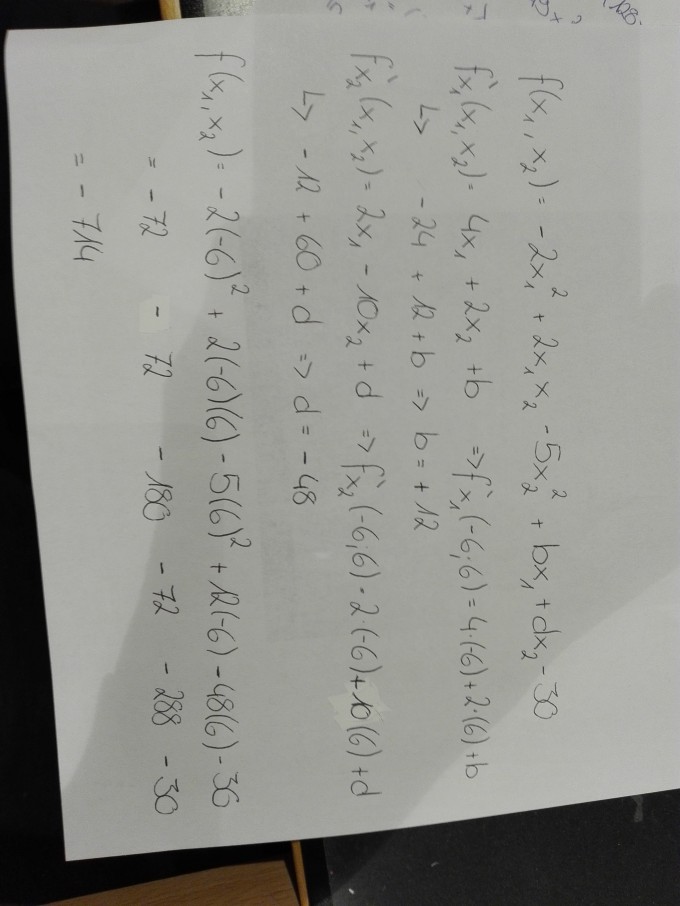 f(x₁, x₂) = -2x₁² + 2x₁x₂ - 5x₂² + bx₁ + dx₂ - 30
f`x₁(x₁, x₂) = 4x₁ + 2x₂ + b => f`x₁(-6,6) = 4·(-6) + 2·(6) + b
↳ -24 + 12 + b => b = +12
f`x₂(x₁, x₂) = 2x₁ - 10x₂ + d => f`x₂(-6,6) = 2·(-6) + 10(6) + d
↳ -12 + 60 + d => d = -48
f(x₁, x₂) = -2(-6)² + 2(-6)(6) - 5(6)² + 12(-6) - 48(6) - 30
= -72 - 72 - 180 - 72 - 288 - 30
= -714